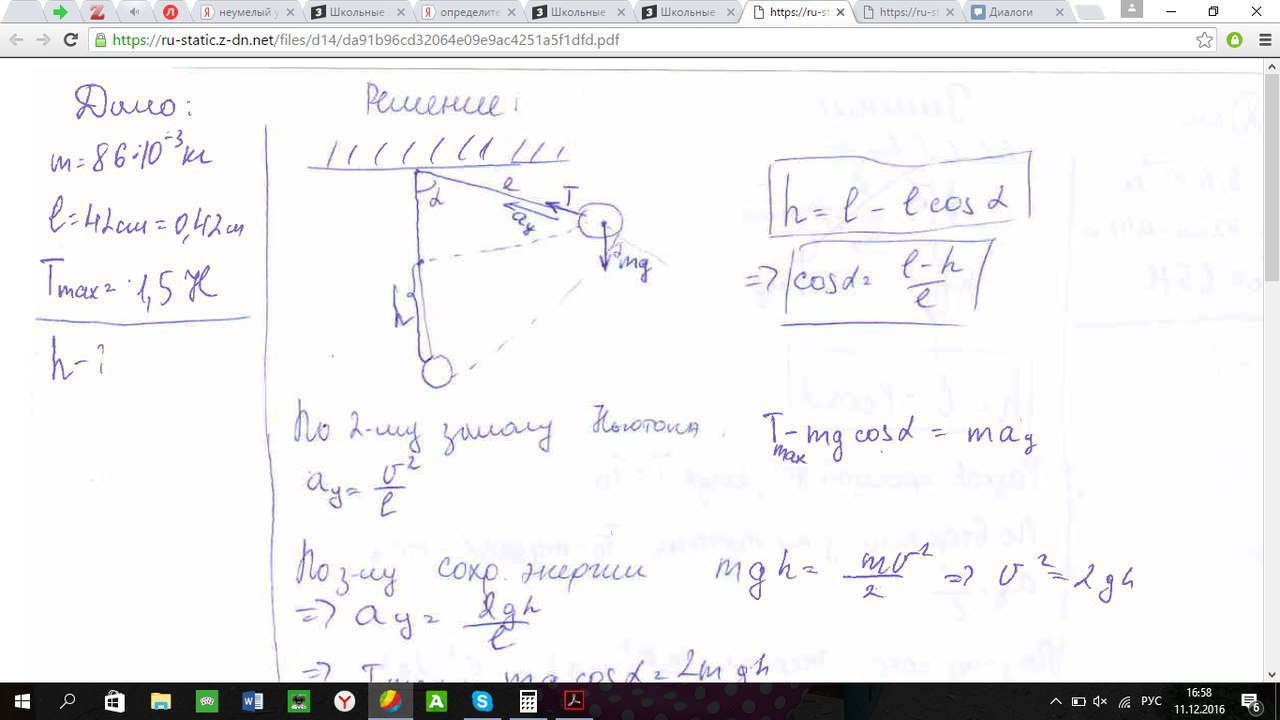 неумелый у
Школьные
определит
Школьные
Школьные
https://ru-st
https://ru-st
Диалоги
https://ru-static.z-dn.net/files/d14/da91b96cd32064e09e9ac4251a5f1dfd.pdf
Дано:
m=86·10⁻³кг
l=42см=0,42м
Tmax=1,5 Н
h-?
Решение:
α
l
T
ay
mg
h
h=l-l cos α
=> cosα= (l-h)/l
По 2-му закону Ньютона. Tmax-mg cosα = may
ay= υ²/l
По з-му сохр. энергии mgh= mυ²/2 => υ²=2gh
=> ay= 2gh/l
mg cosα=2mgh
РУС
16:58
11.12.2016
6